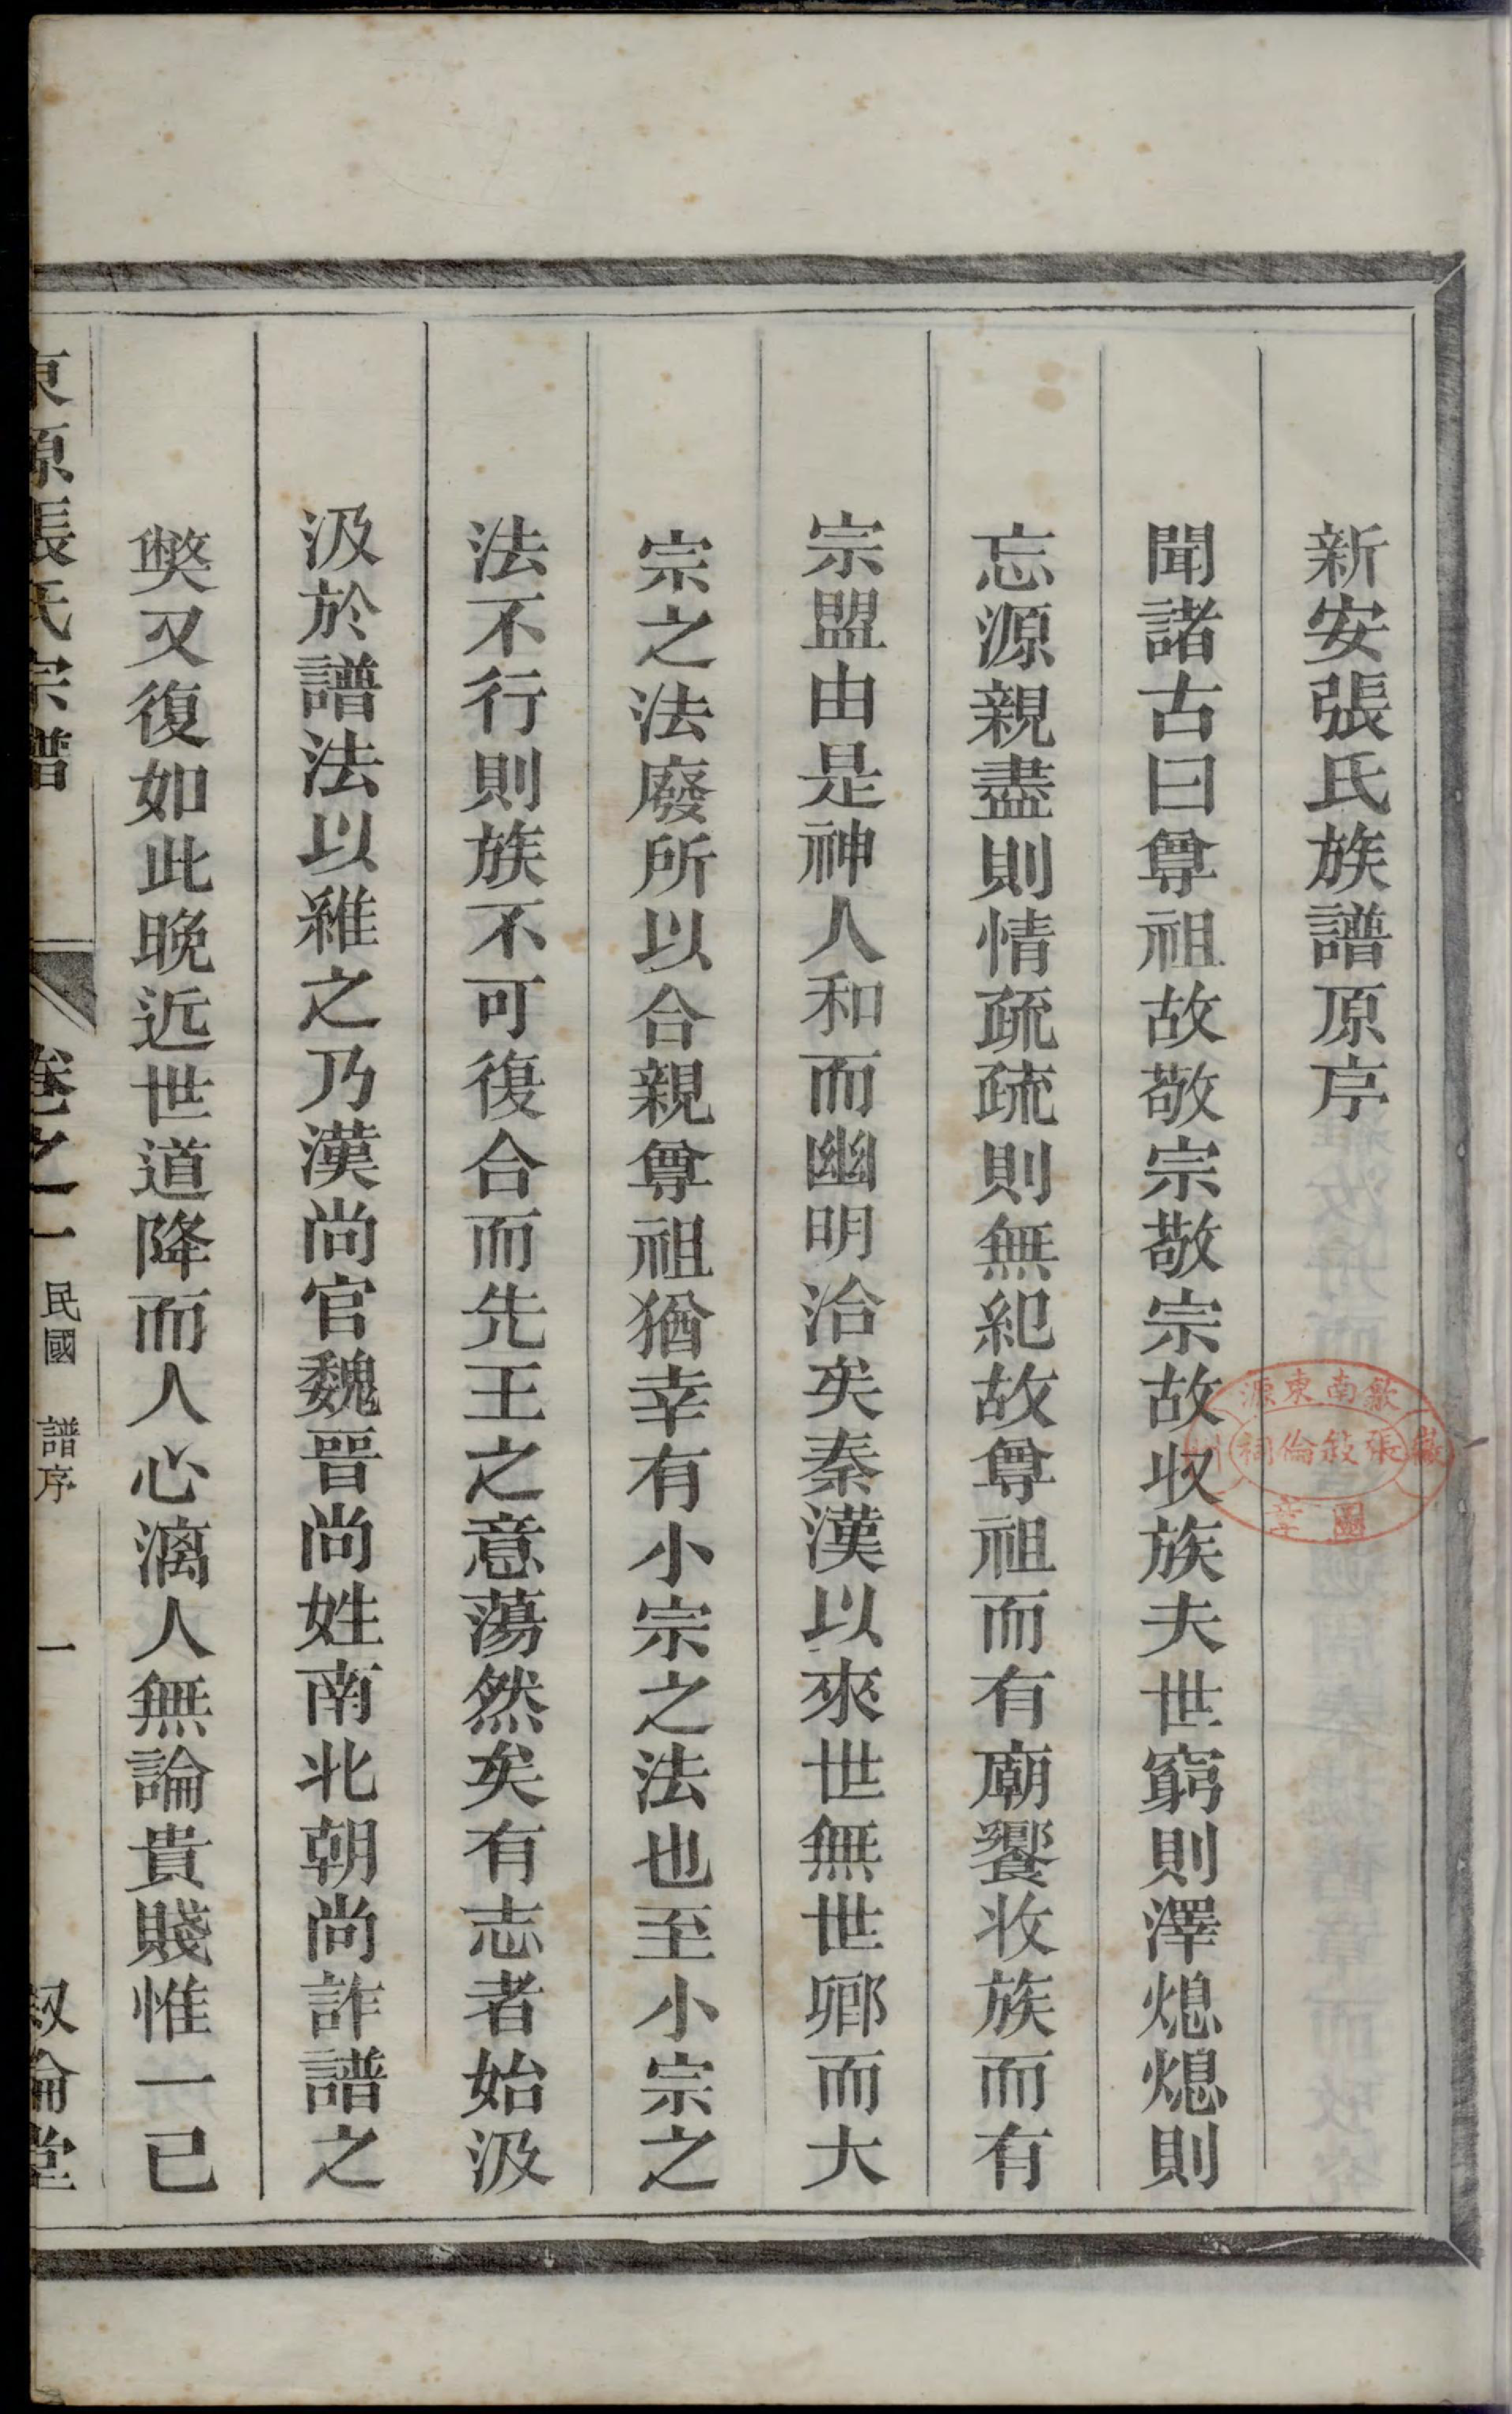 新安張氏族譜原序
聞諸古曰尊祖故敬宗敬宗故收族夫世窮則澤熄熄則
忘源親盡則情疏疏則無紀故尊祖而有廟饗收族而有
宗盟由是神人和而幽明洽矣秦漢以來世無世卿而大
宗之法廢所以合親尊祖猶幸有小宗之法也至小宗之
法不行則族不可復合而先王之意蕩然矣有志者始汲
汲於譜法以維之乃漢尚官魏晉尚姓南北朝尚詐譜之
獘又復如此晚近世道降而人心漓人無論貴賤惟一已
東源張氏宗譜 卷之一 民國 譜序 一 叙倫堂
歙南東源
張敘倫祠
圖章